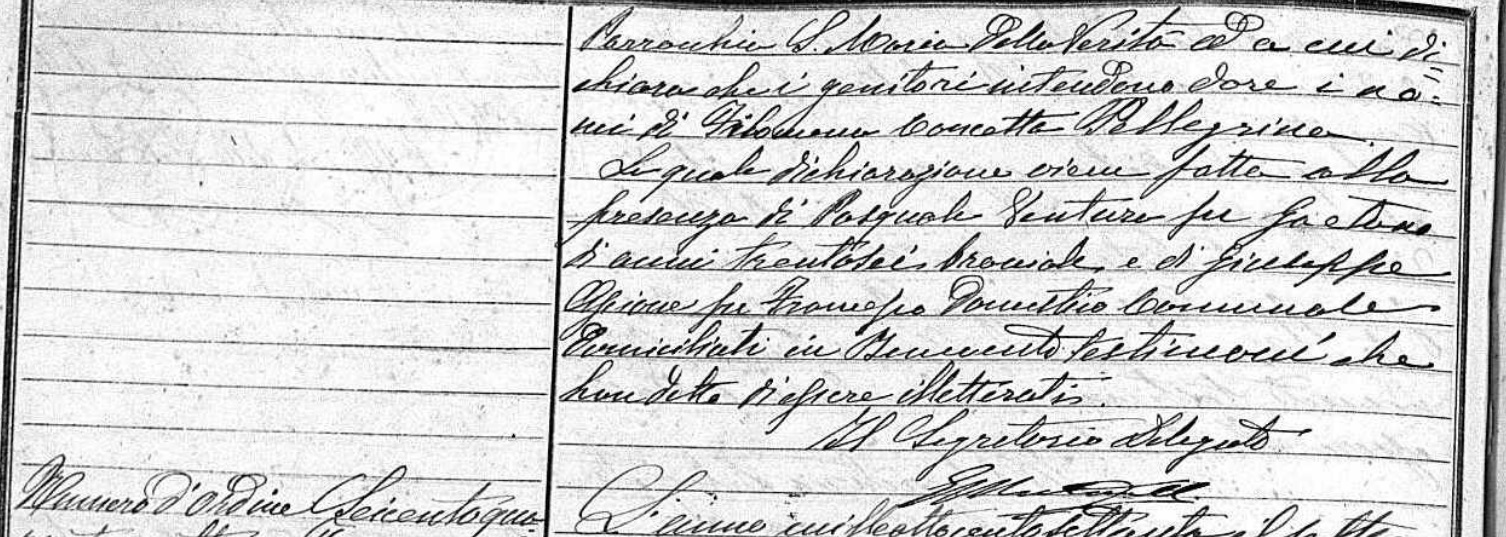 Parrocchia S. Maria della Verità ed a cui di=
chiara che i genitori intendono dare i no=
mi di Filomena Concetta Pellegrina
La quale dichiarazione viene fatta alla
presenza di Pasquale Venture fu Gaetano
di anni trentasei bracciale, e di Giuseppe
fu Francesco Domestico Comunale
domiciliati in Benevento testimoni che
han detto di essere illetterati.
Il Segretario Delegato
Numero d'ordine Seicentoqua
L'anno milleottocentosettanta il